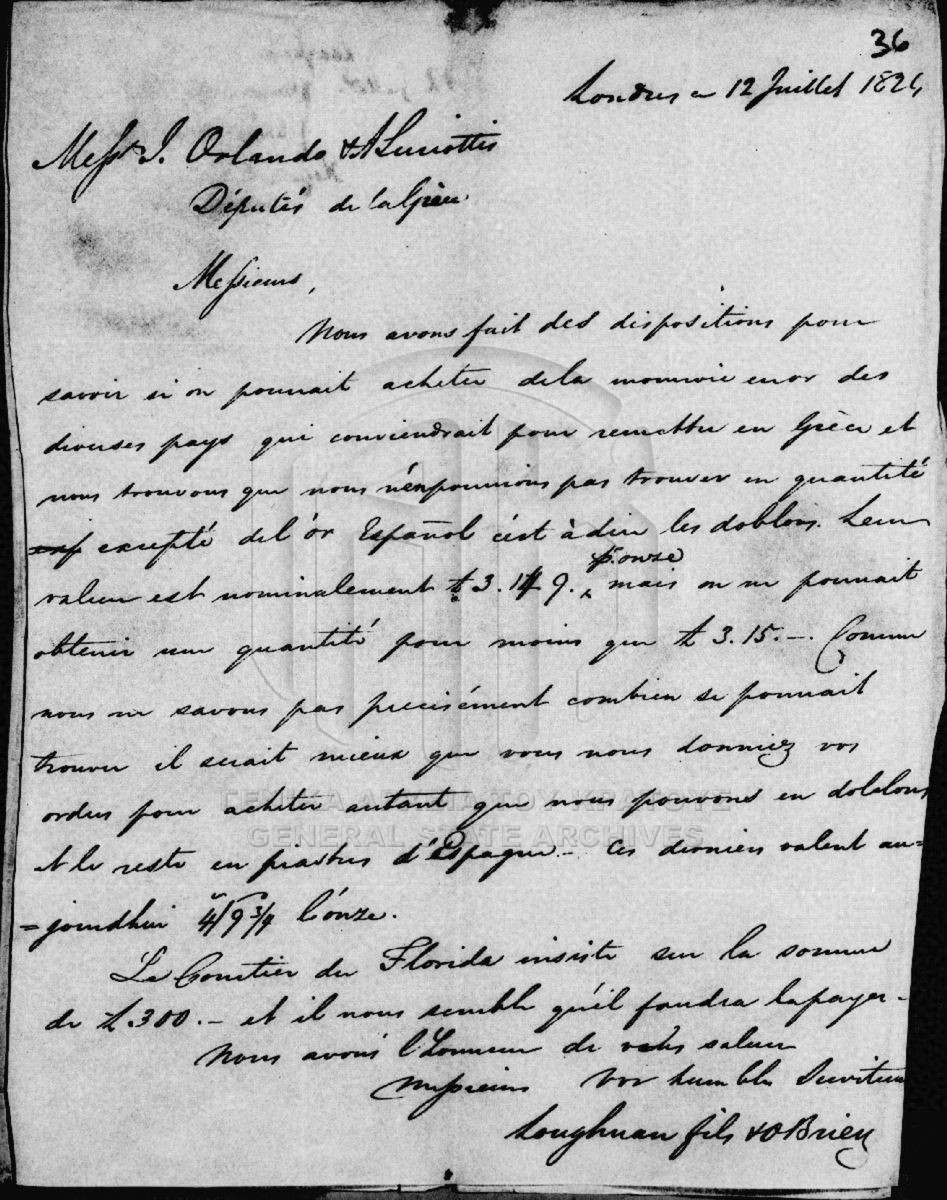 36
Londres ce 12 Juillet 1824
Messrs J. Orlando & A Luriottis
Députés de la Grèce
Messieurs,
Nous avons fait des dispositions pour
savoir si on pourrait acheter de la monnoie en or des
diverses pays qui conviendrait pour remettre en Grèce et
nous trouvons que nous n'en pourrions pas trouver en quantité
excepté de l'or Español c'est à dire les doblons. Leur
valeur est nominalement £3.14 9. p. onze mais on ne pourrait
obtenir une quantité pour moins que £3.15.–. Comme
nous ne savons pas precisément combien se pourrait
trouver il serait mieux que vous nous donniez vos
ordres pour acheter autant que nous pouvons en doblons
et le reste en piastres d'Espagne – Ces derniers valent au=
=jourdhui 4/9 3/4 l'onze.
Le Courtier du Florida insiste sur la somme
de £300.– et il nous semble qu'il faudra la payer –
Nous avons l'honneur de vous saluer
Messieurs Vos humbles Serviteurs
Loughnan fils & O'Brien
ΓΕΝΙΚΑ ΑΡΧΕΙΑ ΤΟΥ ΚΡΑΤΟΥΣ
GENERAL STATE ARCHIVES